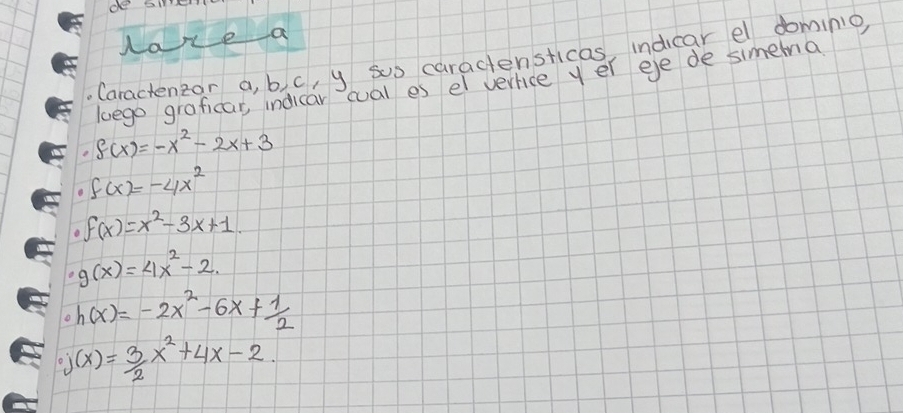 de simetria
Tarea
• Caracterizar a, b, c, y sus caracteristicas, indicar el dominio,
luego graficar, indicar cual es el vertice y el eje de simetria
• f(x)= -x² - 2x + 3
• f(x)= -4x²
• f(x)= x² - 3x + 1.
• g(x)= 4x² - 2.
• h(x)= -2x² - 6x + 1/2
• j(x)= 3/2 x² + 4x - 2.